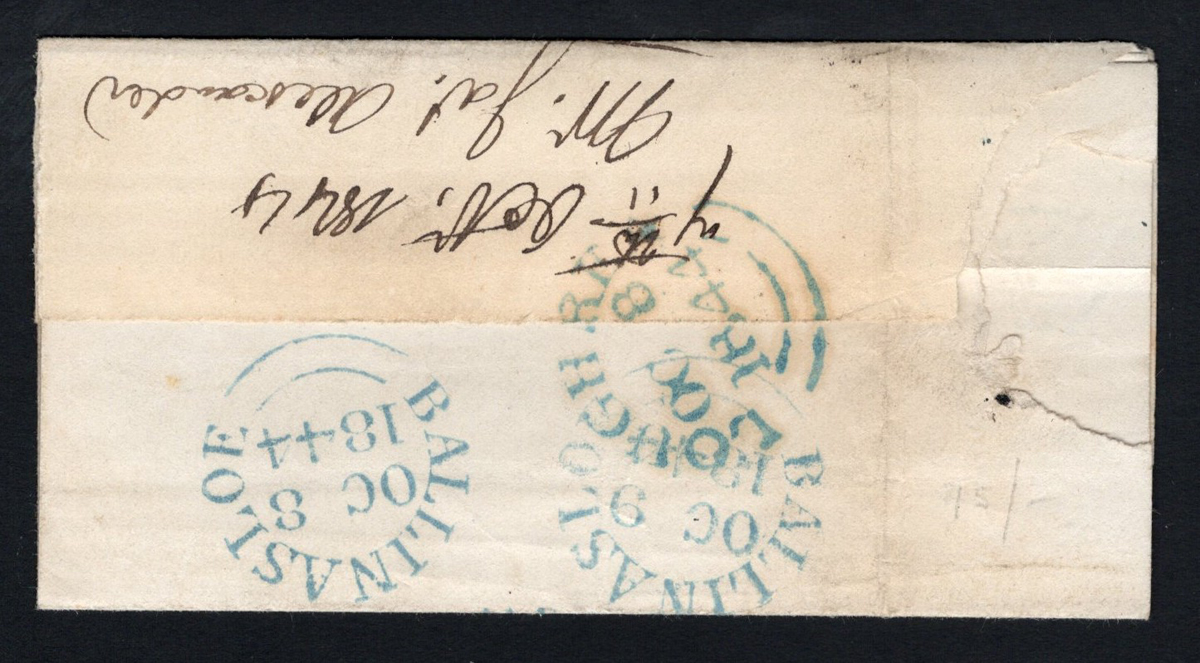 BALLINASLOE
OC 8
1844
BALLINASLOE
OC 9
1844
LOUGHREA
OC 8
1844
Oct. 1844
11
Mr. Jas. Alexander
75/-